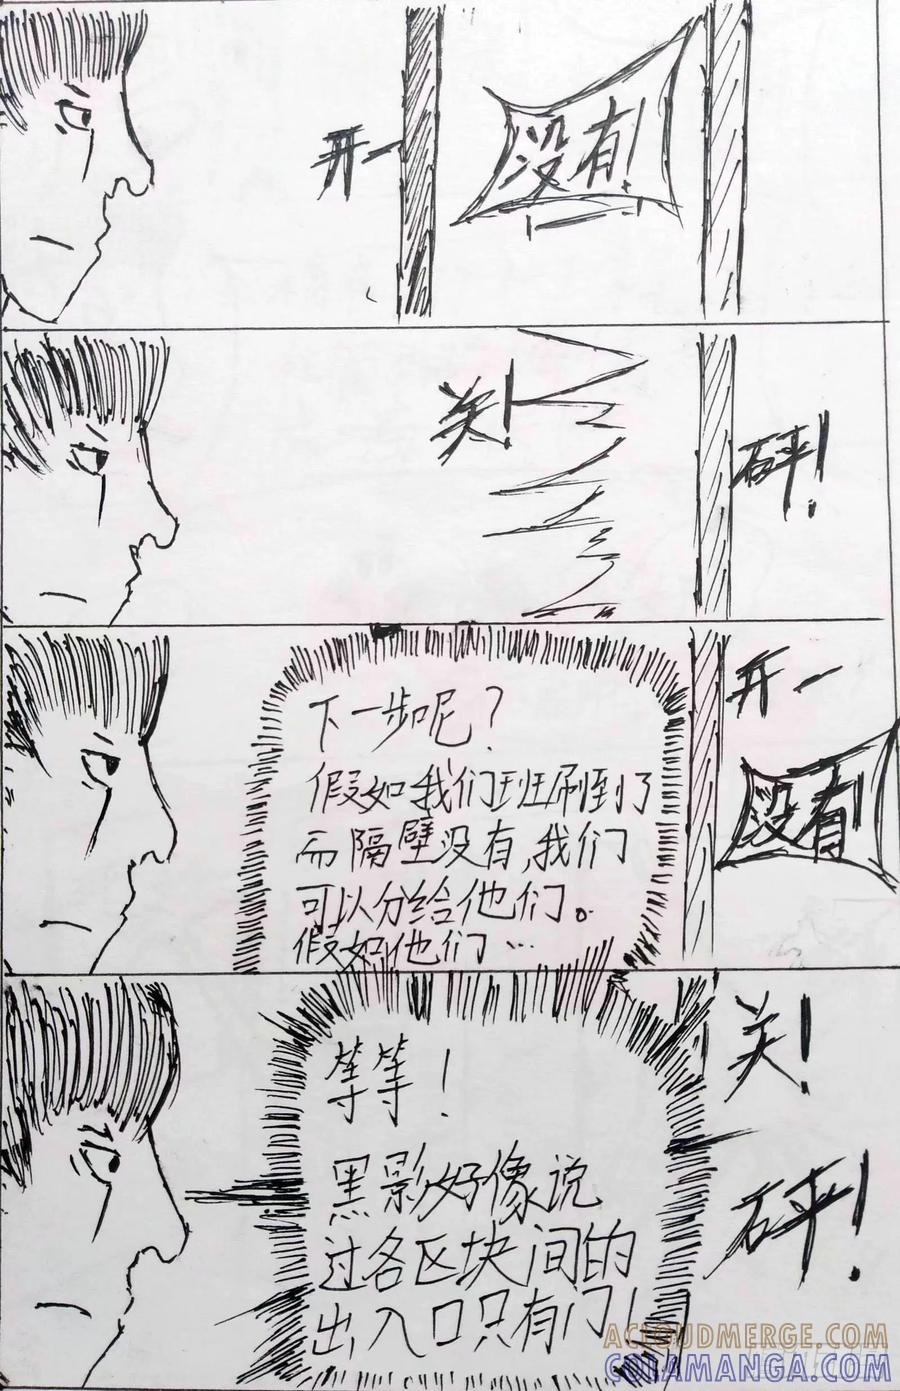 开一
没有!
关!
砰!
开一
没有!
下一步呢?
假如我们班刷到了
而隔壁没有,我们
可以分给他们。
假如他们…
关!
砰!
等等!
黑影好像说
过各区块间的
出入口只有门!
ACLOUDMERGE.COM
COLAMANGA.COM